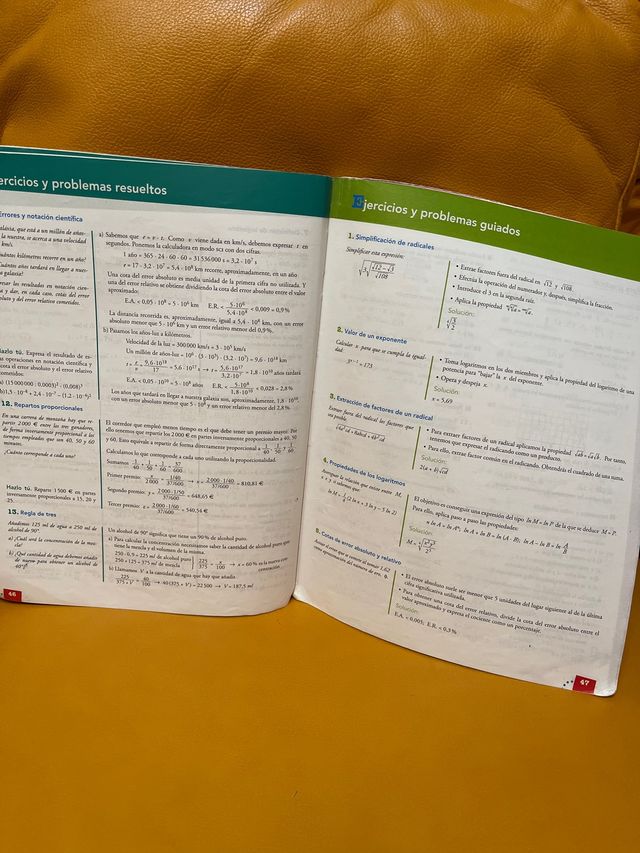 ercicios y problemas resueltos
Errores y notación científica
galaxia, que está a un millón de años-
la nuestra, se acerca a una velocidad
km/s.
uántos kilómetros recorre en un año?
uántos años tardará en llegar a nues-
a galaxia?
resar los resultados en notación cien-
a y dar, en cada caso, cotas del error
oluto y del error relativo cometidos.
Hazlo tú.
(15 000 000 : 0,0003)² · (0,008)³
a) Sabemos que e = v · t. Como v viene dada en km/s, debemos expresar t en
segundos. Ponemos la calculadora en modo SCI con dos cifras.
1 año = 365 · 24 · 60 · 60 = 31 536 000 s ≈ 3,2 · 10⁷ s
e = 17 · 3,2 · 10⁷ = 5,4 · 10⁸ km recorre, aproximadamente, en un año
Una cota del error absoluto es media unidad de la primera cifra no utilizada. Y
una del error relativo se obtiene dividiendo la cota del error absoluto entre el valor
aproximado:
E.A. < 0,05 · 10⁸ = 5 · 10⁶ km E.R. < 5 · 10⁶ / 5,4 · 10⁸ < 0,009 = 0,9 %
La distancia recorrida es, aproximadamente, igual a 5,4 · 10⁸ km, con un error
absoluto menor que 5 · 10⁶ km y un error relativo menor del 0,9 %.
b) Pasamos los años-luz a kilómetros.
Velocidad de la luz = 300 000 km/s = 3 · 10⁵ km/s
Un millón de años-luz = 10⁶ · (3 · 10⁵) · (3,2 · 10⁷) = 9,6 · 10¹⁸ km
Los años que tardará en llegar a nuestra galaxia son, aproximadamente, 1,8 · 10¹⁰,
con un error absoluto menor que 5 · 10⁸ y un error relativo menor del 2,8 %.
12. Repartos proporcionales
En una carrera de montaña hay que re-
partir 2 000 € entre los tres ganadores,
de forma inversamente proporcional a los
tiempos empleados que son 40, 50 y 60
minutos.
¿Cuánto corresponde a cada uno?
Hazlo tú. Reparte 1 500 € en partes
inversamente proporcionales a 15, 20 y
25.
El corredor que empleó menor tiempo es el que debe tener un premio mayor. Por
ello tenemos que repartir los 2 000 € en partes inversamente proporcionales a 40, 50
y 60. Esto equivale a repartir de forma directamente proporcional a 1/40, 1/50 y 1/60.
Calculamos lo que corresponde a cada uno utilizando la proporcionalidad.
Sumamos: 1/40 + 1/50 + 1/60 = 37/600
Primer premio: x = 2 000 · 1/40 / 37/600 → x = 810,81 €
Segundo premio: y = 2 000 · 1/50 / 37/600 = 648,65 €
Tercer premio: z = 2 000 · 1/60 / 37/600 = 540,54 €
13. Regla de tres
Añadimos 125 ml de agua a 250 ml de
alcohol de 90°.
a) ¿Cuál será la concentración de la mez-
cla?
b) ¿Qué cantidad de agua debemos añadir
de nuevo para obtener un alcohol de
40°?
Un alcohol de 90° significa que tiene un 90 % de alcohol puro.
a) Para calcular la concentración necesitamos saber la cantidad de alcohol puro que
tiene la mezcla y el volumen de la misma.
250 · 0,9 = 225 ml de alcohol puro
250 + 125 = 375 ml de mezcla
225/375 = x/100 → x = 60 % es la nueva
concentración.
b) Llamamos V a la cantidad de agua que hay que añadir.
225/375 + V = 40/100 → 40(375 + V) = 22 500 → V = 187,5 ml
46
Ejercicios y problemas guiados
1. Simplificación de radicales
Simplificar esta expresión:
• Extraer factores fuera del radical en √12 y √108.
• Efectúa la operación del numerador y, después, simplifica la fracción.
• Introduce el 3 en la segunda raíz.
• Aplica la propiedad
Solución:
2. Valor de un exponente
Calcular x para que se cumpla la igual-
dad:
= 173
• Toma logaritmos en los dos miembros y aplica la propiedad del logaritmo de una
potencia para "bajar" la x del exponente.
• Opera y despeja x.
Solución:
x = 5,69
3. Extracción de factores de un radical
Extraer fuera del radical los factores que
sea posible:
• Para extraer factores de un radical aplicamos la propiedad √ab = √a √b. Por tanto,
tenemos que expresar el radicando como un producto.
• Para ello, extrae factor común en el radicando. Obtendrás el cuadrado de una suma.
Solución:
2(a + b)√a
4. Propiedades de los logaritmos
El objetivo es conseguir una expresión del tipo ln M = ln P de la que se deduce M = P.
Para ello, aplica paso a paso las propiedades:
n ln A = ln Aⁿ; ln A + ln B = ln (A · B); ln A – ln B = ln A/B
Solución:
5. Cotas de error absoluto y relativo
• El error absoluto suele ser menor que 5 unidades del lugar siguiente al de la última
cifra significativa utilizada.
• Para obtener una cota del error relativo, divide la cota del error absoluto entre el
valor aproximado y expresa el cociente como un porcentaje.
Solución:
E.A. < 0,005; E.R. < 0,3 %
47